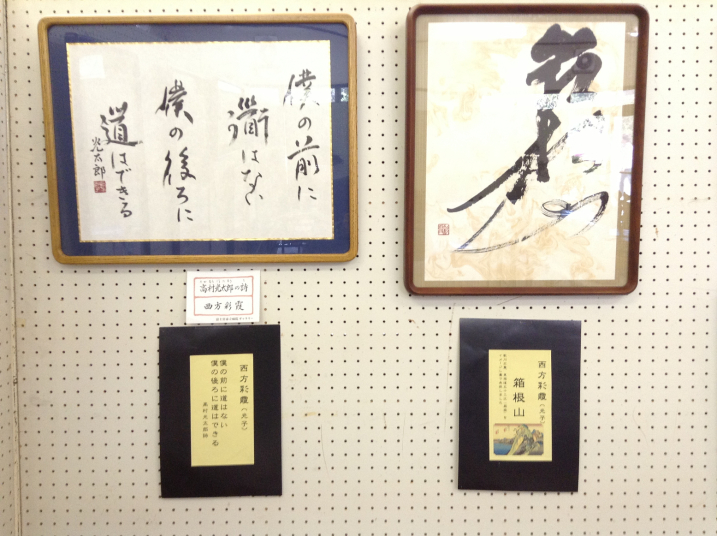 僕の前に
道はない
僕の後ろに
道はできる
光太郎
箱根山
高村光太郎の詩
西方彩霞
西方彩霞（光子）
僕の前に道はない
僕の後ろに道はできる
高村光太郎詩
西方彩霞（光子）
箱根山